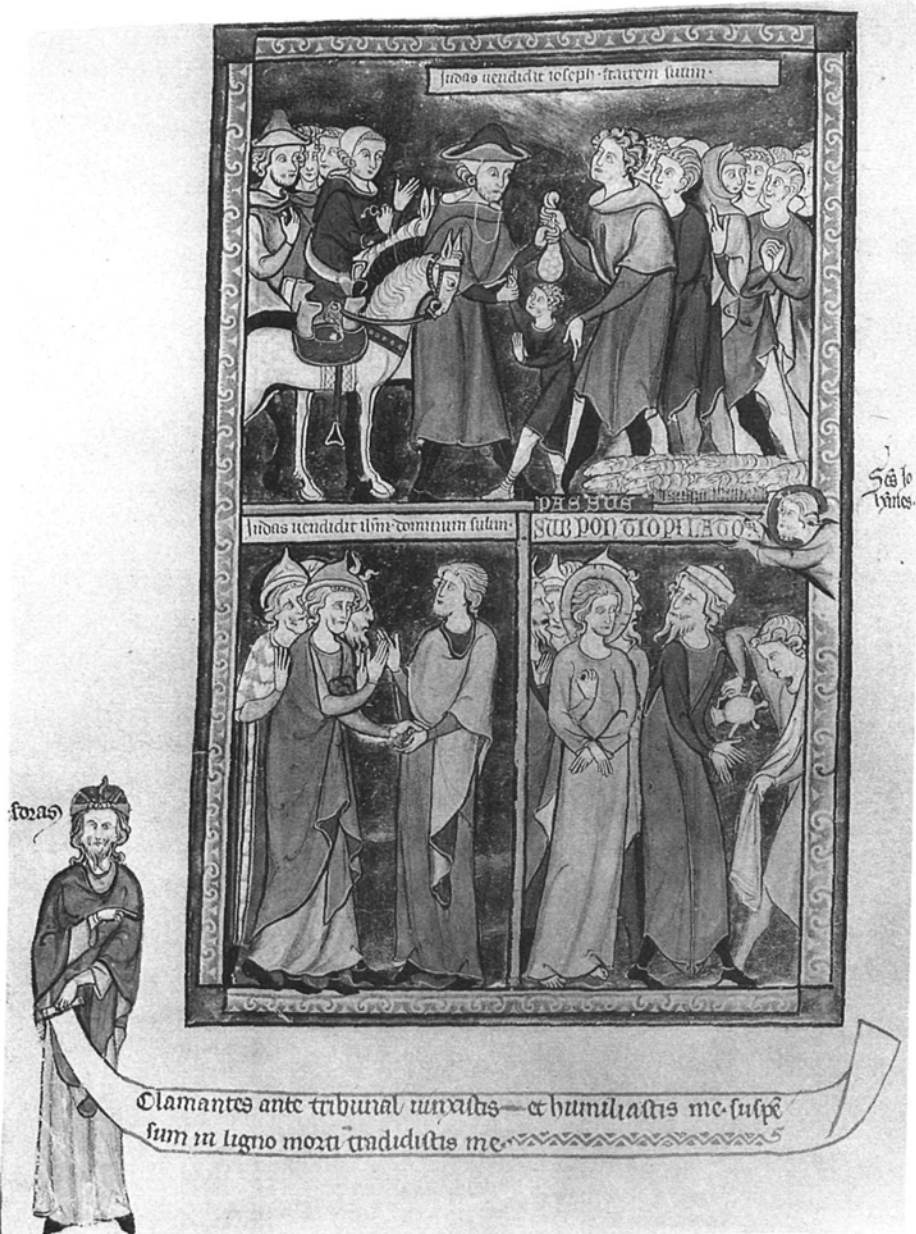 Judas uendidit ioseph · fratrem suum ·
PASSUS
Judas uendidit ihm dominum suum ·
SUB PONTIO PILATO
Scs Jo
hannes ·
· foras
Clamantes ante tribunal iunxistis et humiliastis me · suspē
sum in ligno morti tradidistis me ·